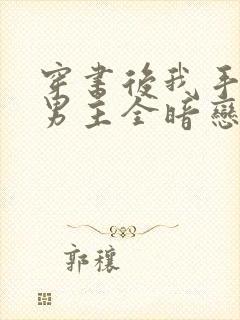 穿書後我手
男主全暗戀
郭穰